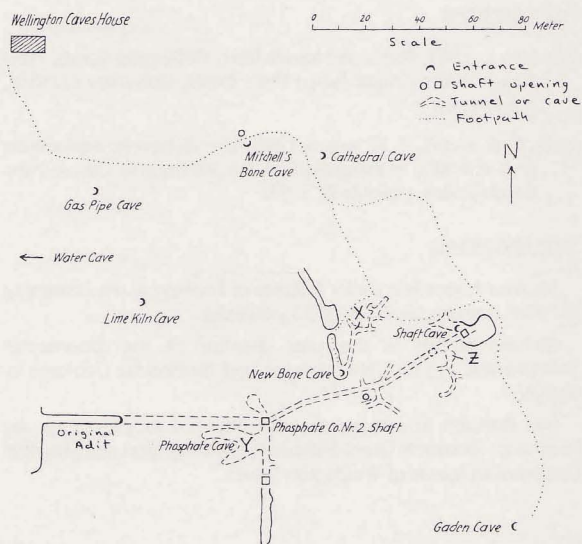 Wellington Caves House
0 20 40 60 80 Meter
Scale
Entrance
Shaft opening
Tunnel or cave
Footpath
N
Mitchell's
Bone Cave
Cathedral Cave
Gas Pipe Cave
Water Cave
Lime Kiln Cave
X
Shaft Cave
Z
New Bone Cave
Original
Adit
Phosphate Co. Nr. 2 Shaft
Phosphate Cave
Y
Gaden Cave